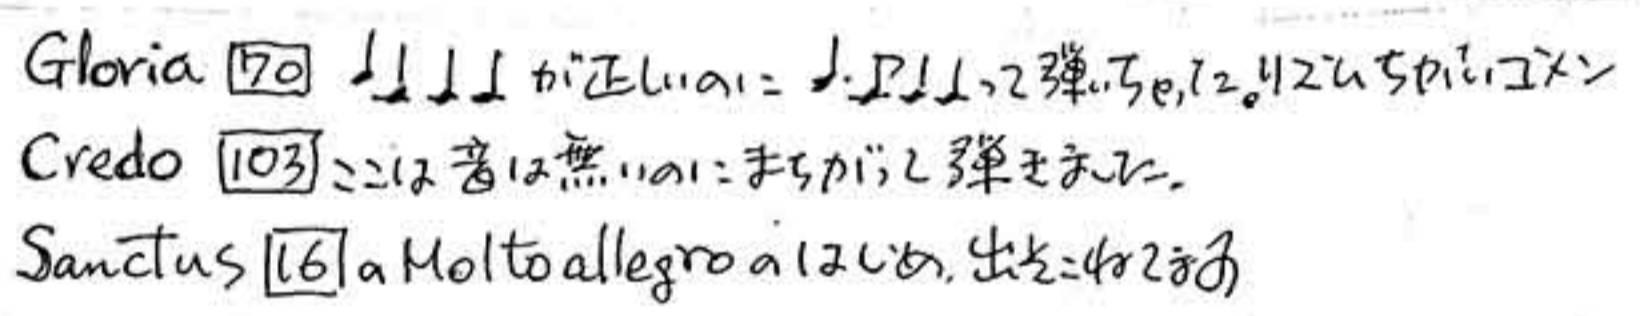 Gloria 70 ♩♩♩♩が正しいのに♩.♪♩♩って弾いちゃった。リズムちがいゴメン
Credo 103 ここは音は無いのにまちがって弾きました。
Sanctus 16 のMolto allegroのはじめ、出そこねてます